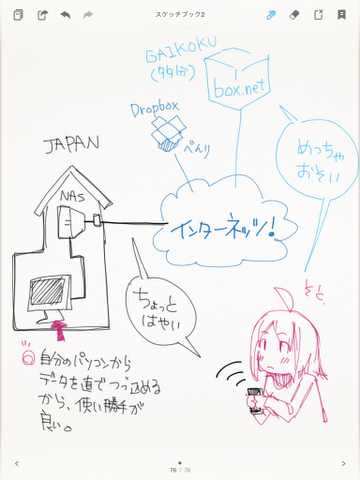 スケッチブック2
GAIKOKU
(多分)
box.net
Dropbox
べんり
めっちゃ
おそい
JAPAN
NAS
インターネッツ!
ちょっと
はやい
そと
自分のパソコンから
データを直でつっ込める
から、使い勝手が
良い。
76 / 76